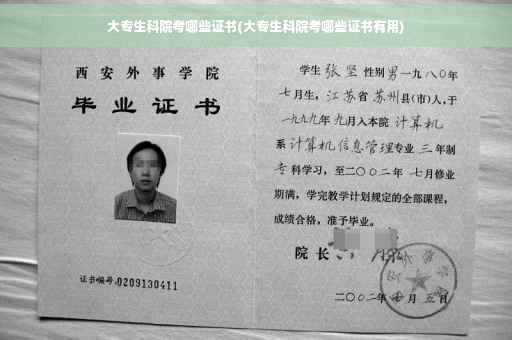 大专生科院考哪些证书(大专生科院考哪些证书有用)
西安外事学院
毕业证书
证书编号:0209130411
学生 张坚 性别 男 一九八〇年
七月生,江苏省 苏州县(市)人,于
一九九九年 九月入本院 计算机
系 计算机信息管理专业 三 年制
专科学习,至二〇〇二年 七月修业
期满,学完教学计划规定的全部课程,
成绩合格,准予毕业。
院长
二〇〇二年 月五日